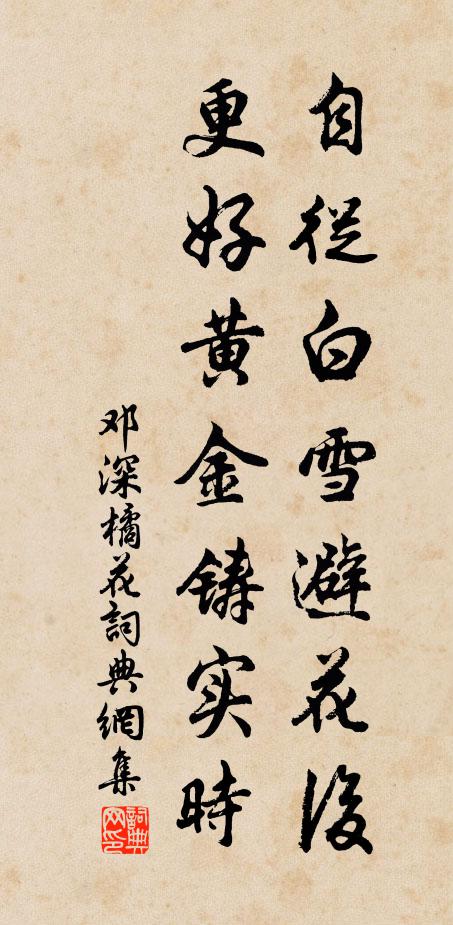 自從白雪避花後
更好黄金铸实時
邓深橘花詞典網集
詞典网印